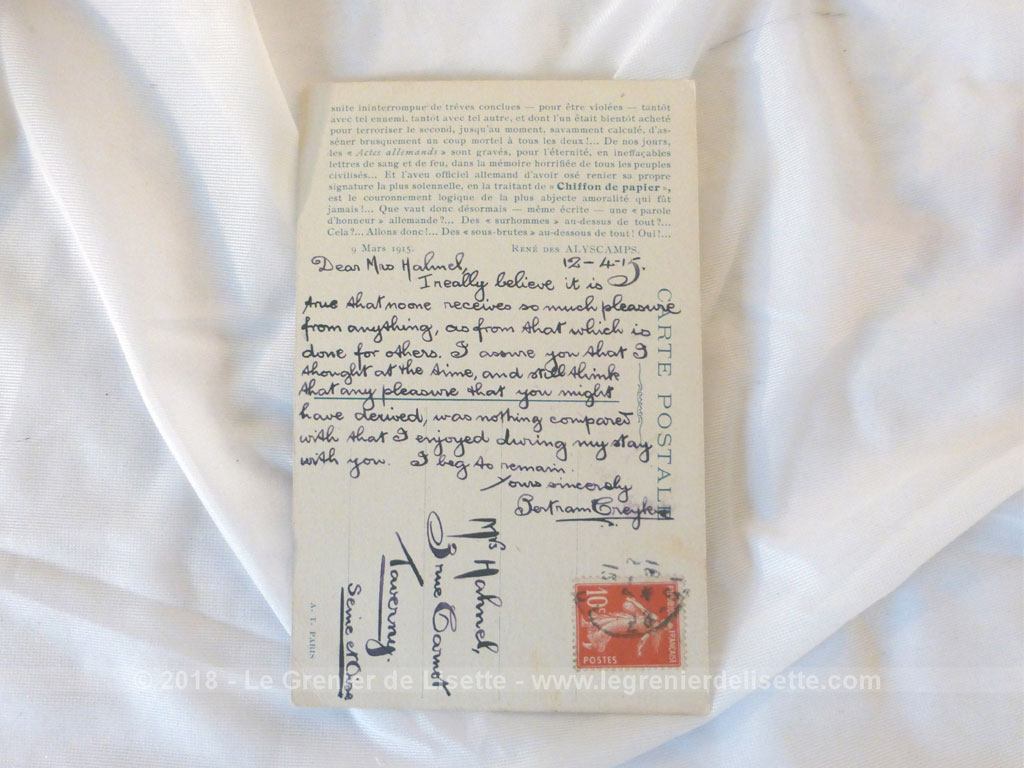 suite ininterrompue de trêves conclues — pour être violées — tantôt
avec tel ennemi, tantôt avec tel autre, et dont l'un était bientôt acheté
pour terroriser le second, jusqu'au moment, savamment calculé, d'as-
séner brusquement un coup mortel à tous les deux!... De nos jours,
les « Actes allemands » sont gravés, pour l'éternité, en ineffaçables
lettres de sang et de feu, dans la mémoire horrifiée de tous les peuples
civilisés... Et l'aveu officiel allemand d'avoir osé renier sa propre
signature la plus solennelle, en la traitant de « Chiffon de papier »,
est le couronnement logique de la plus abjecte amoralité qui fût
jamais!... Que vaut donc désormais — même écrite — une « parole
d'honneur » allemande?... Des « surhommes » au-dessus de tout?...
Cela?... Allons donc!... Des « sous-brutes » au-dessous de tout! Oui!...
9 Mars 1915. René des ALYSCAMPS.
Dear Mrs Hahnel, 12-4-15.
I really believe it is
true that no one receives so much pleasure
from anything, as from that which is
done for others. I assure you that I
thought at the time, and still think
that any pleasure that you might
have derived, was nothing compared
with that I enjoyed during my stay
with you. I beg to remain.
Yours sincerely
Bertram
CARTE POSTALE
Mrs Hahnel,
3 rue Carnot
Taverny.
Seine et Oise
A. T. PARIS
10c
POSTES
FRANÇAISE
© 2018 - Le Grenier de Lisette - www.legrenierdelisette.com